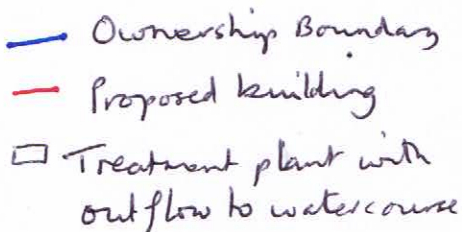 Ownership Boundary
Proposed building
Treatment plant with
outflow to watercourse